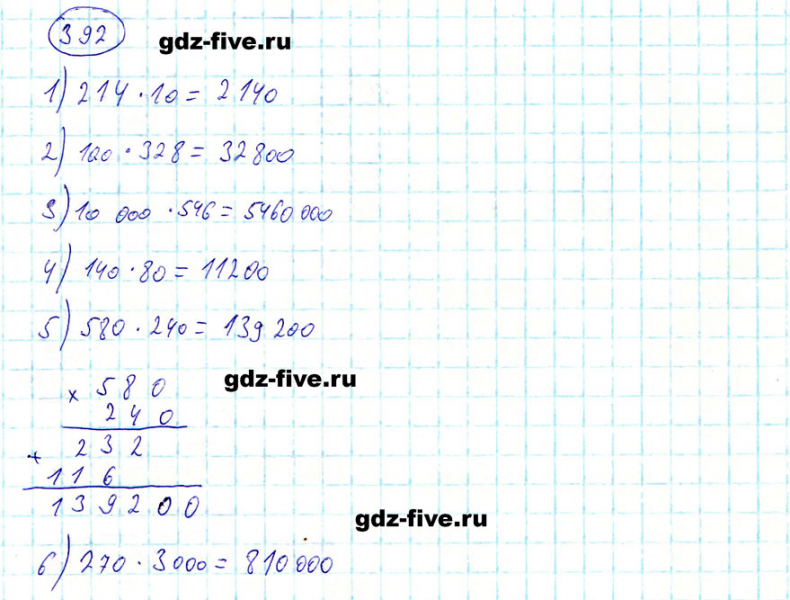 392
gdz-five.ru
1) 214 · 10 = 2140
2) 100 · 328 = 32800
3) 10 000 · 546 = 5460 000
4) 140 · 80 = 11200
5) 580 · 240 = 139 200
× 580
gdz-five.ru
240
+ 232
116
139200
gdz-five.ru
6) 270 · 3000 = 810 000